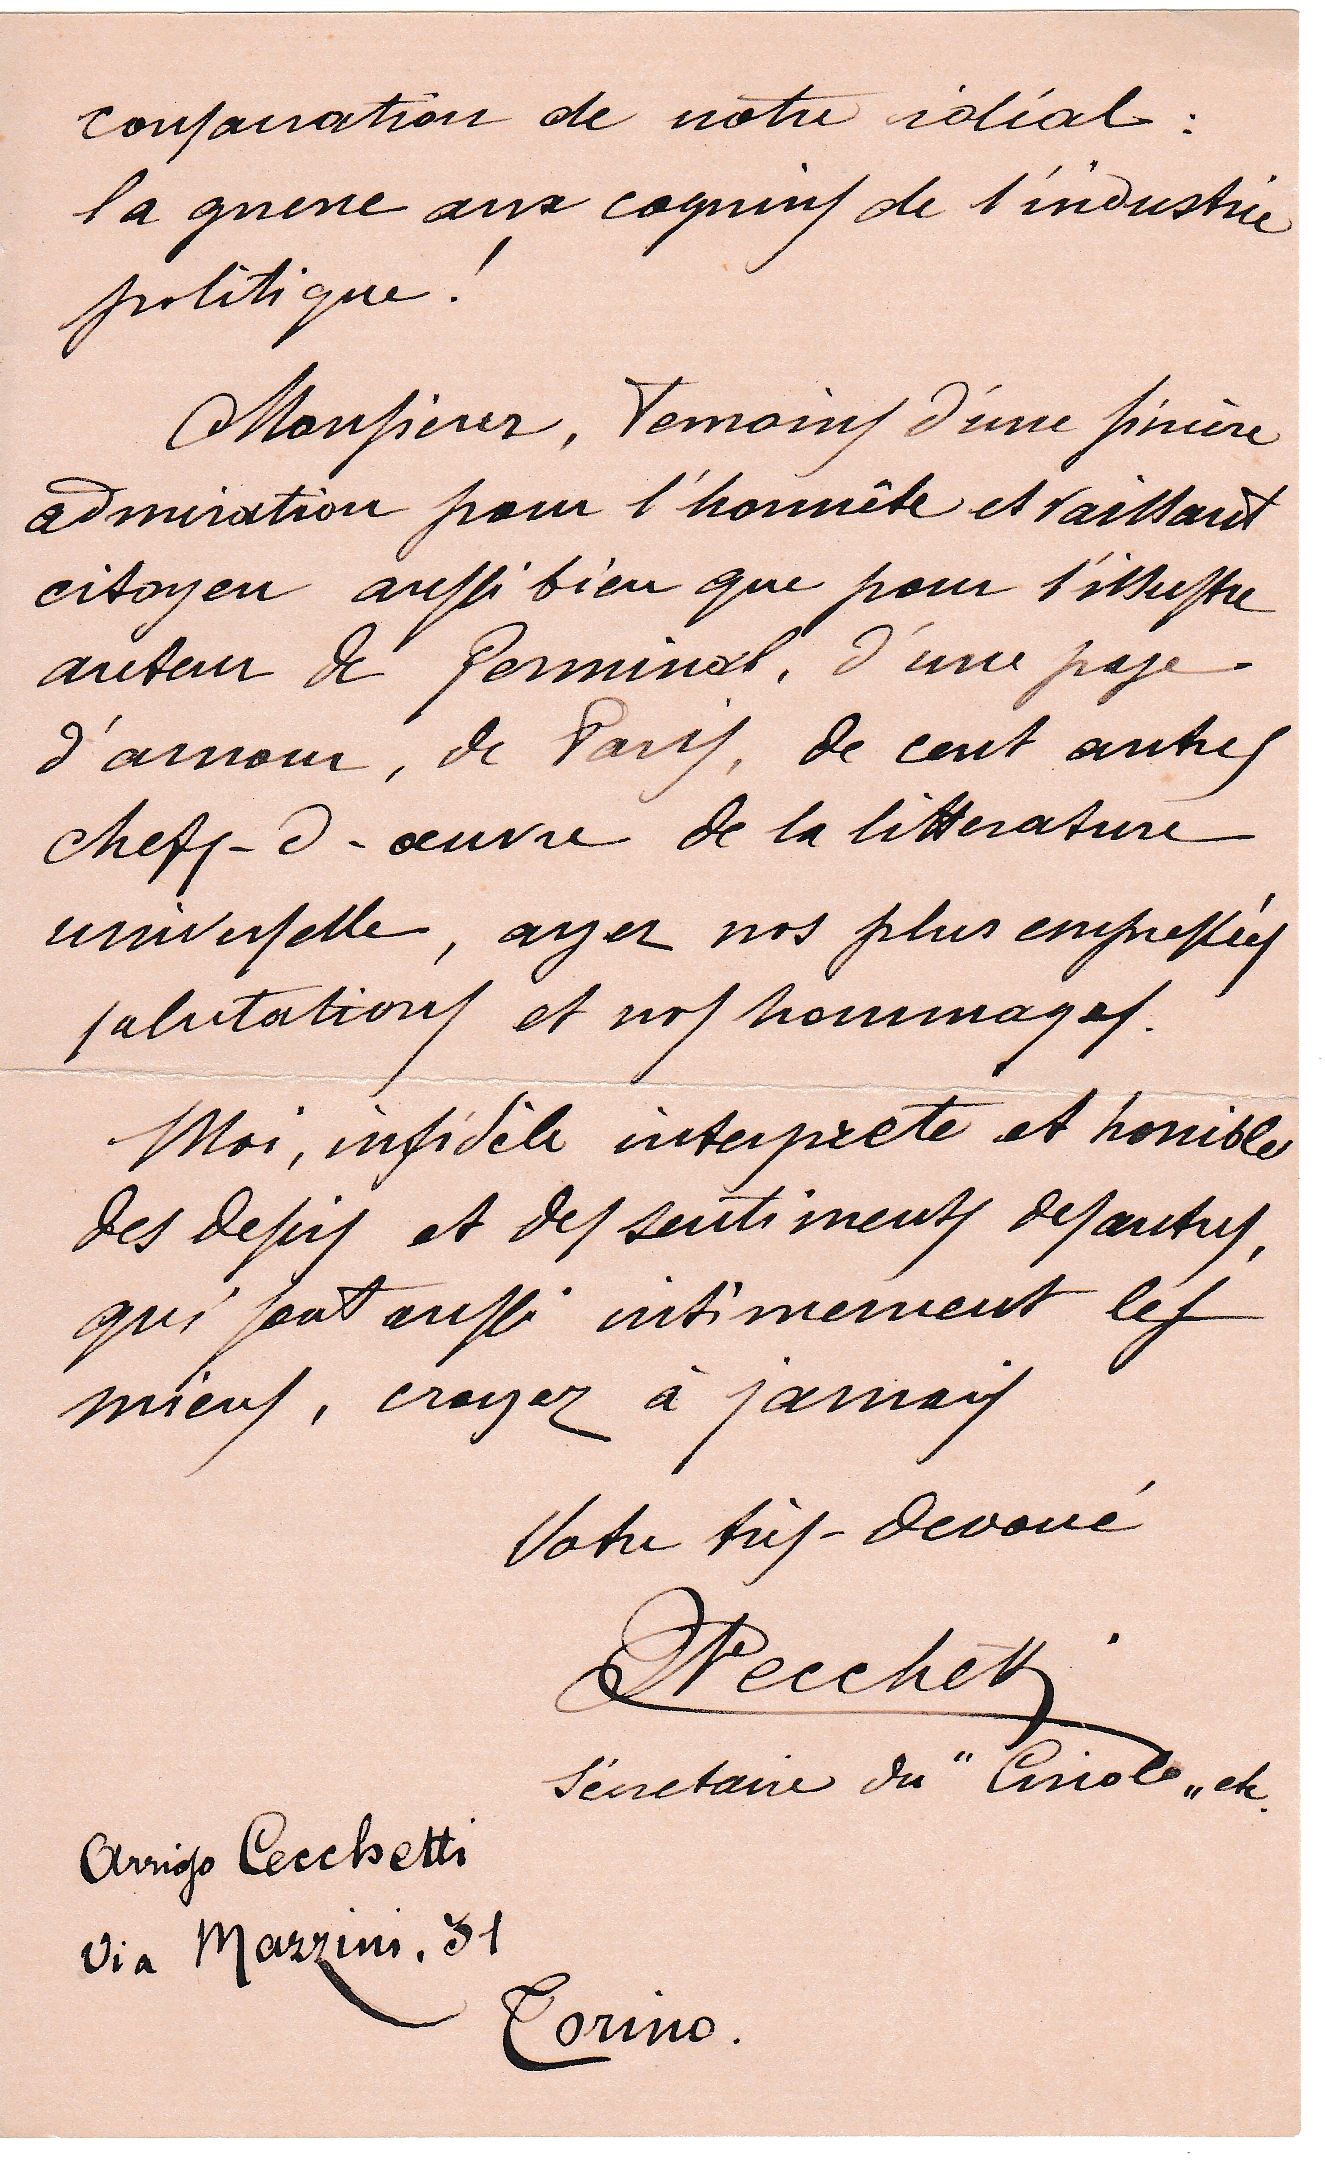 consacration de notre idéal :
la guerre aux coquins de l'industrie
politique !
Monsieur, Temoins d'une sincère
admiration pour l'honnête et vaillant
citoyen aussi bien que pour l'illustre
auteur de Germinal, d'une page
d'amour, de Paris, de cent autres
chefs-d-œuvre de la litterature
universelle, ayez nos plus empressées
salutations et nos hommages.
Moi, infidèle interprete et horrible
des desirs et des sentiments des autres,
qui sont aussi intimement les
miens, croyez à jamais
Votre très-devoué
Cecchetti
Sécretaire du "Circolo„ etc.
Arrigo Cecchetti
Via Mazzini, 31
Torino.